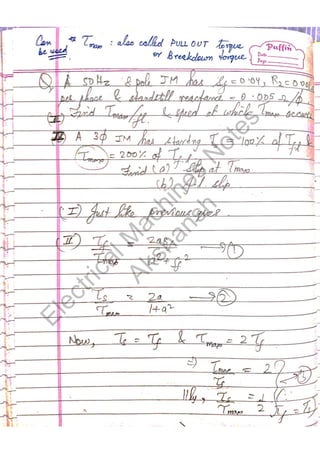 Can be used
* Tmax : also called PULL OUT torque
or Breakdown torque
Puffin
Date
Page
Q A 50 Hz 8 pole IM has sf = 0.04, R2 = 0.00
per phase & standstill reactance = 0.005 Ω/φ
(I) Find Tmax/fl. & speed at which Tmax occurs
(II) A 3φ IM has starting T = 100% of Tfl &
Tmax = 200% of Tf.
Find (a) slip at Tmax
(b) fl slip
(I) Just like previous ques
(II) Tf/Tmax = 2asf/a²+sf² → (1)
Ts/Tmax = 2a/1+a² → (2)
Now, Ts = Tf & Tmax = 2Tf
⇒ Tmax/Tf = 2
(3)
llly, Ts/Tmax = 1/2 Tf = Ts
Electrical Machines Notes
Akshansh